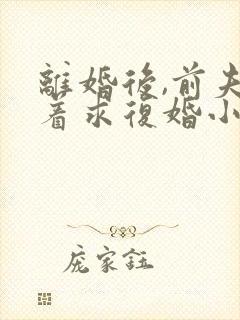 離婚後,前夫
着求復婚小
庞家钰